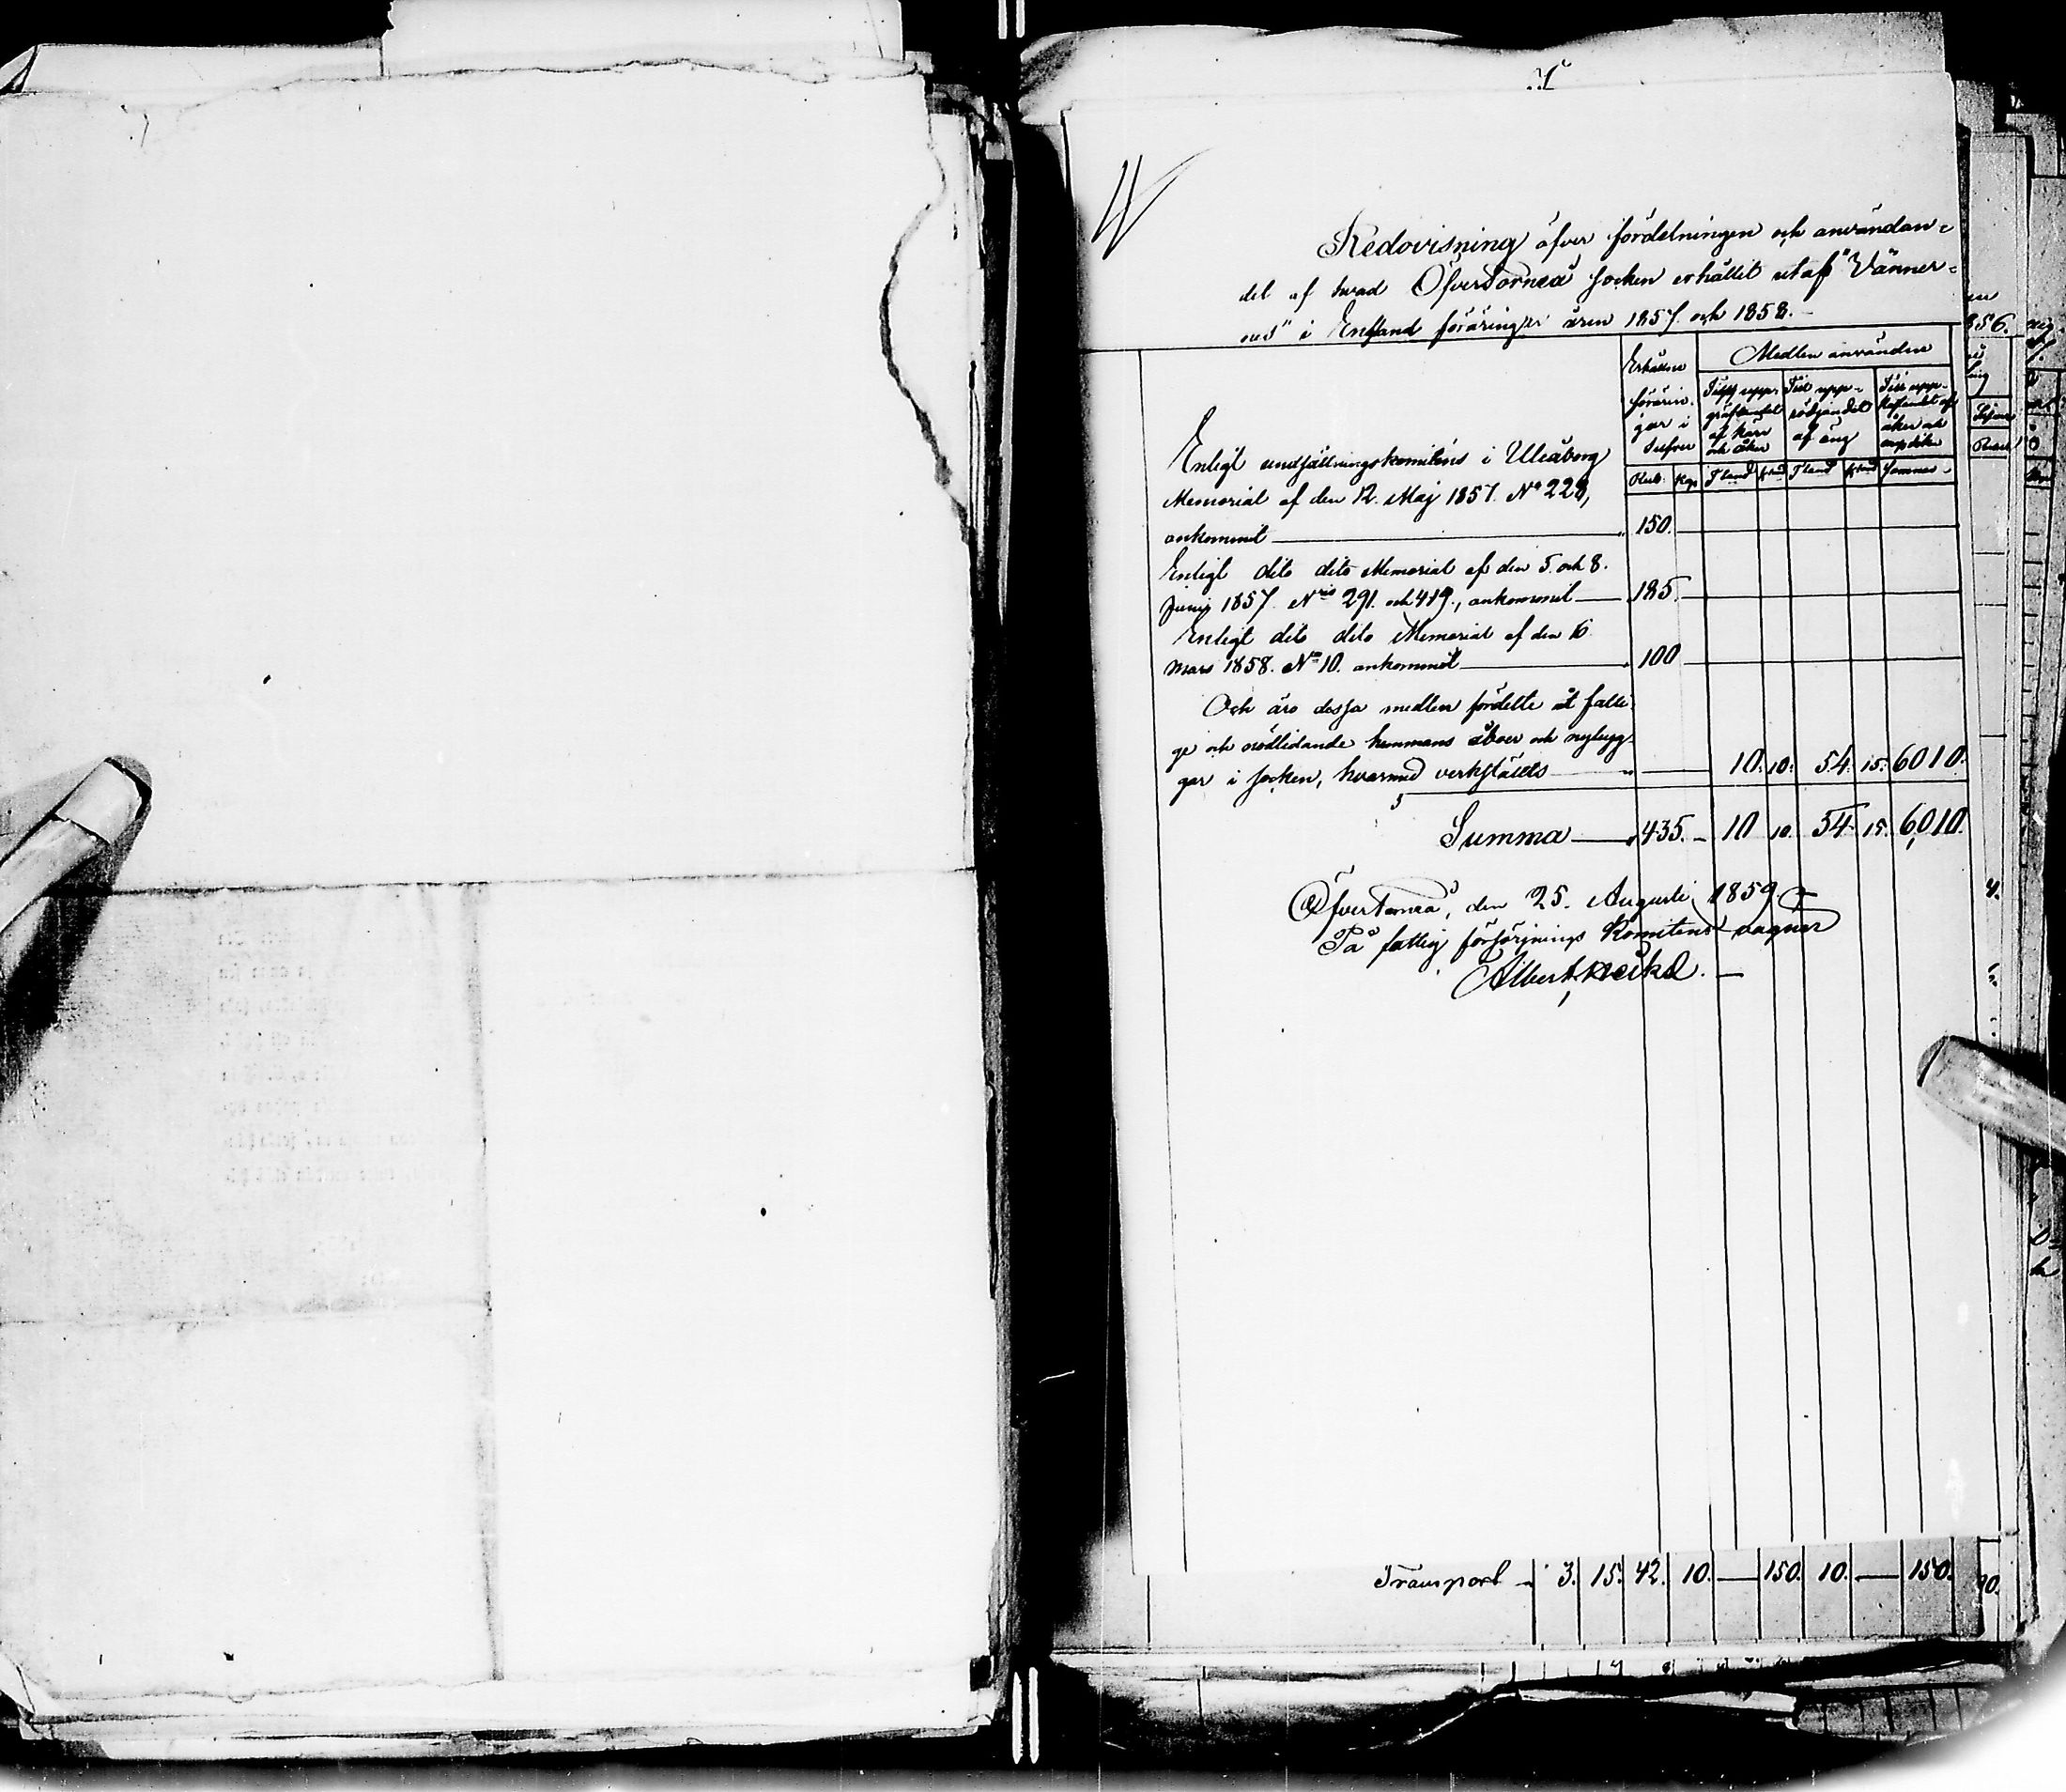 Redovisning öfver fördelningen och användan=
det af hvad ÖfverTorneå socken erhållit utaf "Vänner=
nes" i England föräringar åren 1857. och 1858.-
Erhållne
förärin.
gar i
Silfver
Medlen använden
Till upp-
gräfvandet
af kärr
och åker
Till upp-
rödjandet
af äng
Till upp-
kastandet af
åker och
ängsdiken
Rub. Kop. Tland Kland Tland Kland Famnar.
Enligt undsättningskomiténs i Uleåborg
Memorial af den 12. Maj 1857. No 228,
ankommit 150.
Enligt dito dito Memorial af den 5. och 8.
Junij 1857. Nris 291. och 419., ankommit 185.
Enligt dito dito Memorial af den 16
mars 1858. No 10. ankommit 100
Och äro dessa medlen fördelte åt fatti-
ge och nödlidande hemmans åboer och nybyg-
gar i socken, hvarmed verkställts 10. 10. 54. 15. 6010.
Summa 435. - 10 10. 54. 15. 6,010.
ÖfverTorneå, den 25. Augusti 1859.
På fattig försörjnings Komiténs vägnar
Albert Heikel. -
Transport 3. 15. 42. 10. — 150. 10. — 150.